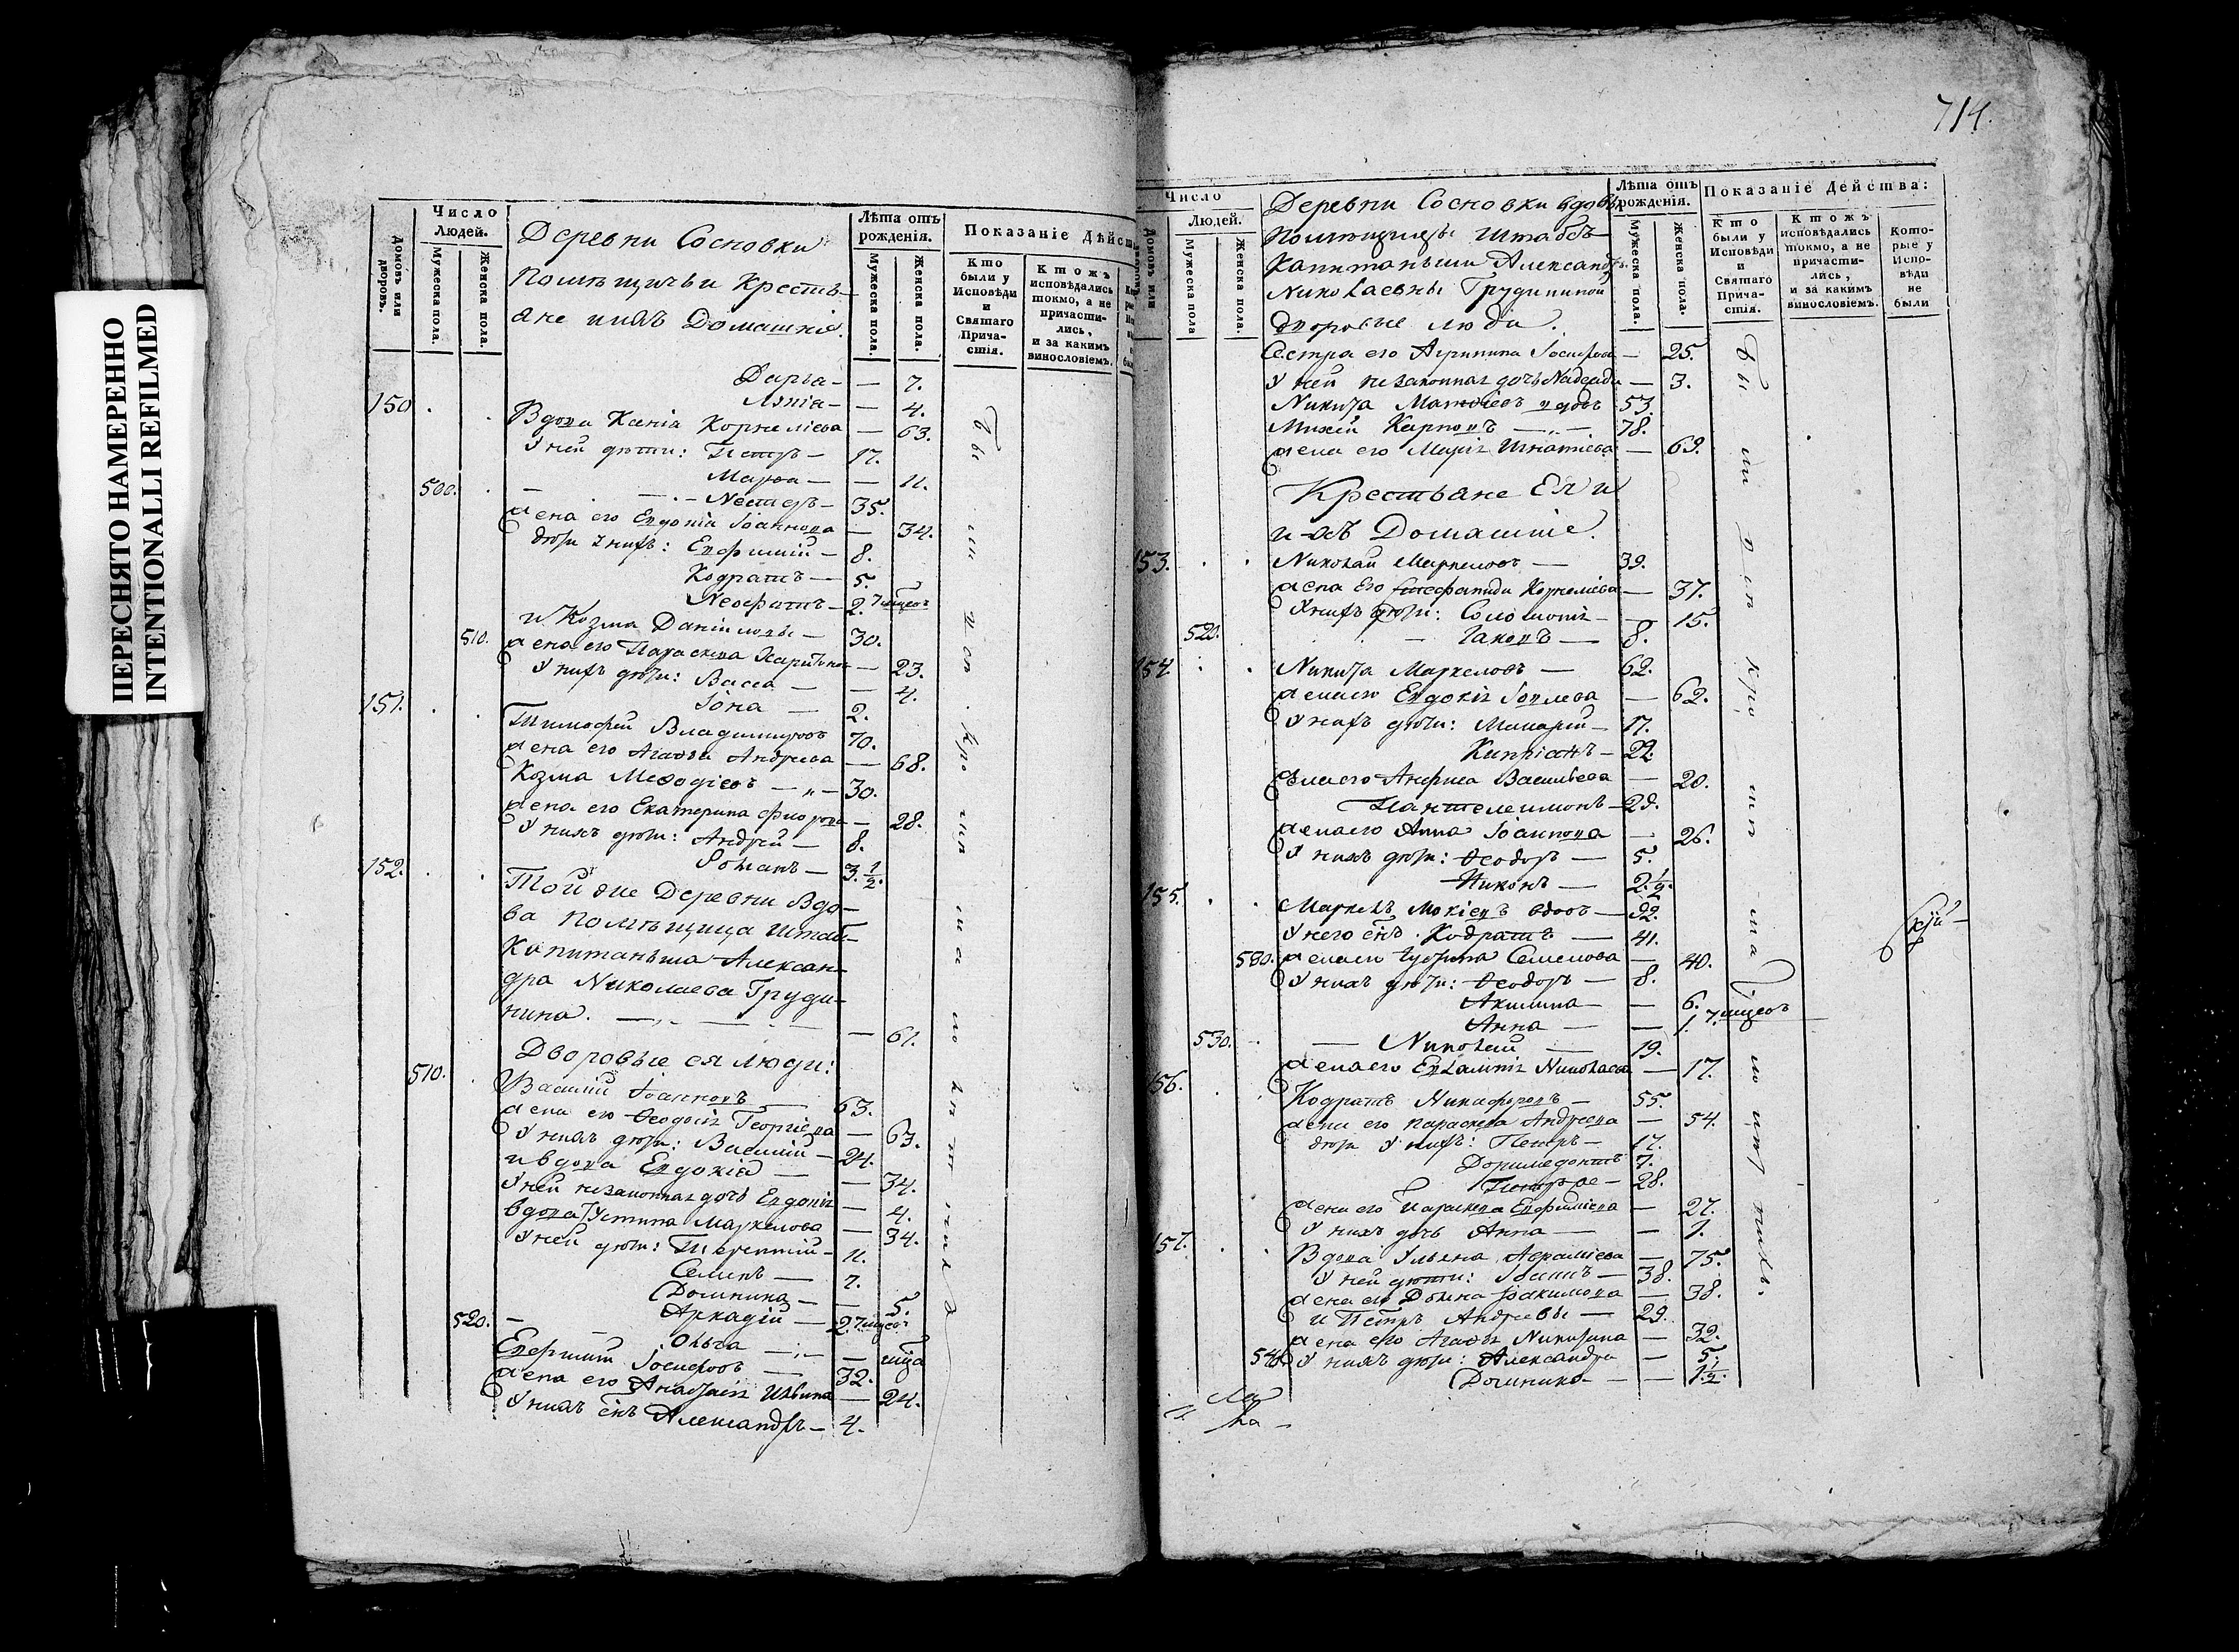 ПЕРЕСНЯТО НАМЕРЕННО
INTENTIONALLI REFILMED
Домовъ или дворовъ.
Число
Людей.
Мужеска пола.
Женска пола.
Деревни Сосновки
помѣщичьи Кресть-
яне и ихъ Домашніе
Лѣта отъ
рожденія.
Мужеска пола.
Женска пола.
Показаніе Дѣйст
Кто
были у
Исповѣди
и
Святаго
Прича-
стія.
Ктожъ
исповѣдались
токмо, а не
причасти-
лись,
и за какимъ
винословіемъ.
Дарья — — 7.
— — 4.
150 Вдова Ксенія Корнеліева — 63.
У ней дѣти: Петръ — 17.
Марѳа — — 11.
500. Несторъ — 35.
жена его Евдокія Іоаннова — 34.
дѣти у нихъ: Евфимій — 8.
Кодратъ — 5.
Неофитъ — 2. 7 мцсовъ
и Козма Даніиловы — 30.
510. жена его Параскева Харитонова — 23.
У нихъ дѣти: Васса — — 4.
Іона — 2.
151. Тимофей Владимировъ 70.
жена его Агаѳья Андреева — 68.
Козма Меѳодіевъ — „ — 30.
жена его Екатерина — 28.
У нихъ дѣти: Андрей — 8.
Романъ — 3. 1/2.
152. Той же Деревни Вдо-
ва помѣщица штабъ-
Капитанша Алексан-
дра Николаева Груди-
нина. — — 61.
Дворовые ея люди:
510. Василій Іоанновъ — 63.
жена его Ѳеодосія Георгіева — 63.
У нихъ дѣти: Василій — 24.
и вдова Евдокія — — 34.
У ней незаконная дочь Евдокія — 4.
вдова Устина Маркелова — 34.
У ней дѣти: Терентій — 11.
Семенъ — 7.
Домника — — 5.
520. Аркадій — 2. 7 мцсовъ
Ольга — — —
Евфимій Іосифовъ — 32.
жена его Анастасія Ильина — 24.
У нихъ сынъ Александръ — 4.
714.
Домовъ или
Число
Людей.
Мужеска пола
Женска пола.
Деревни Сосновки вдовы
помѣщицы Штабсъ-
Капитанши Александры
Николаевны Грудининой
дворовые люди.
Лѣта отъ
рожденія.
Мужеска пола.
Женска пола.
Показаніе Дѣйства:
Кто
были у
Исповѣди
и
Святаго
Прича-
стія.
Ктожъ
исповѣдались
токмо, а не
причасти-
лись,
и за какимъ
винословіемъ.
Кото-
рые у
Испо-
вѣди
не
были
Сестра его Агрипина Іосифова — 25.
У ней незаконная дочь Надежда — 3.
Никита Матѳіевъ вдовъ 53.
Михей Карповъ — „ — 78.
жена его Марія Игнатіева — 69.
Крестьяне Ея и
ихъ Домашніе.
153. Николай Маркеловъ — 39.
жена его Корнеліева — 37.
У нихъ дѣти: Соломонія — — 15.
520. Іаковъ — 8.
154 Никита Маркеловъ — 62.
жена его Евдокія — 62.
У нихъ дѣти: Макарій — 17.
Кипріанъ — 22.
жена его Анфиса Васильева — 20.
Пантелеимонъ — 29.
жена его Анна Іоаннова — 26.
У нихъ дѣти: Ѳеодоръ — 5.
Никонъ — 2. 1/2.
155. Маркелъ Мокіевъ вдовъ — 92.
У него сынъ Кодратъ — 41.
530. жена его Семенова — 40.
У нихъ дѣти: Ѳеодоръ — 8.
Акилина — — 6.
Анна — — 1. 7. мцсовъ
530. Николай — 19.
жена его Евлампія Николаева — 17.
156. Кодратъ Никифоровъ — 55.
жена его Параскева Андреева — 54.
дѣти у нихъ: Петръ — 17.
Доримедонтъ 7.
28.
жена его Параскева Евфиміева — 27.
У нихъ дочь Анна — — 1.
157. Вдова Ульяна Авраміева — 75.
У ней дѣти: — 38.
жена его Домна Іоакимова — 38.
и Петръ Андреевы — 29.
жена его Агаѳья Никитина — 32.
540. У нихъ дѣти: Александра — 5.
Домника — — 1 1/2.